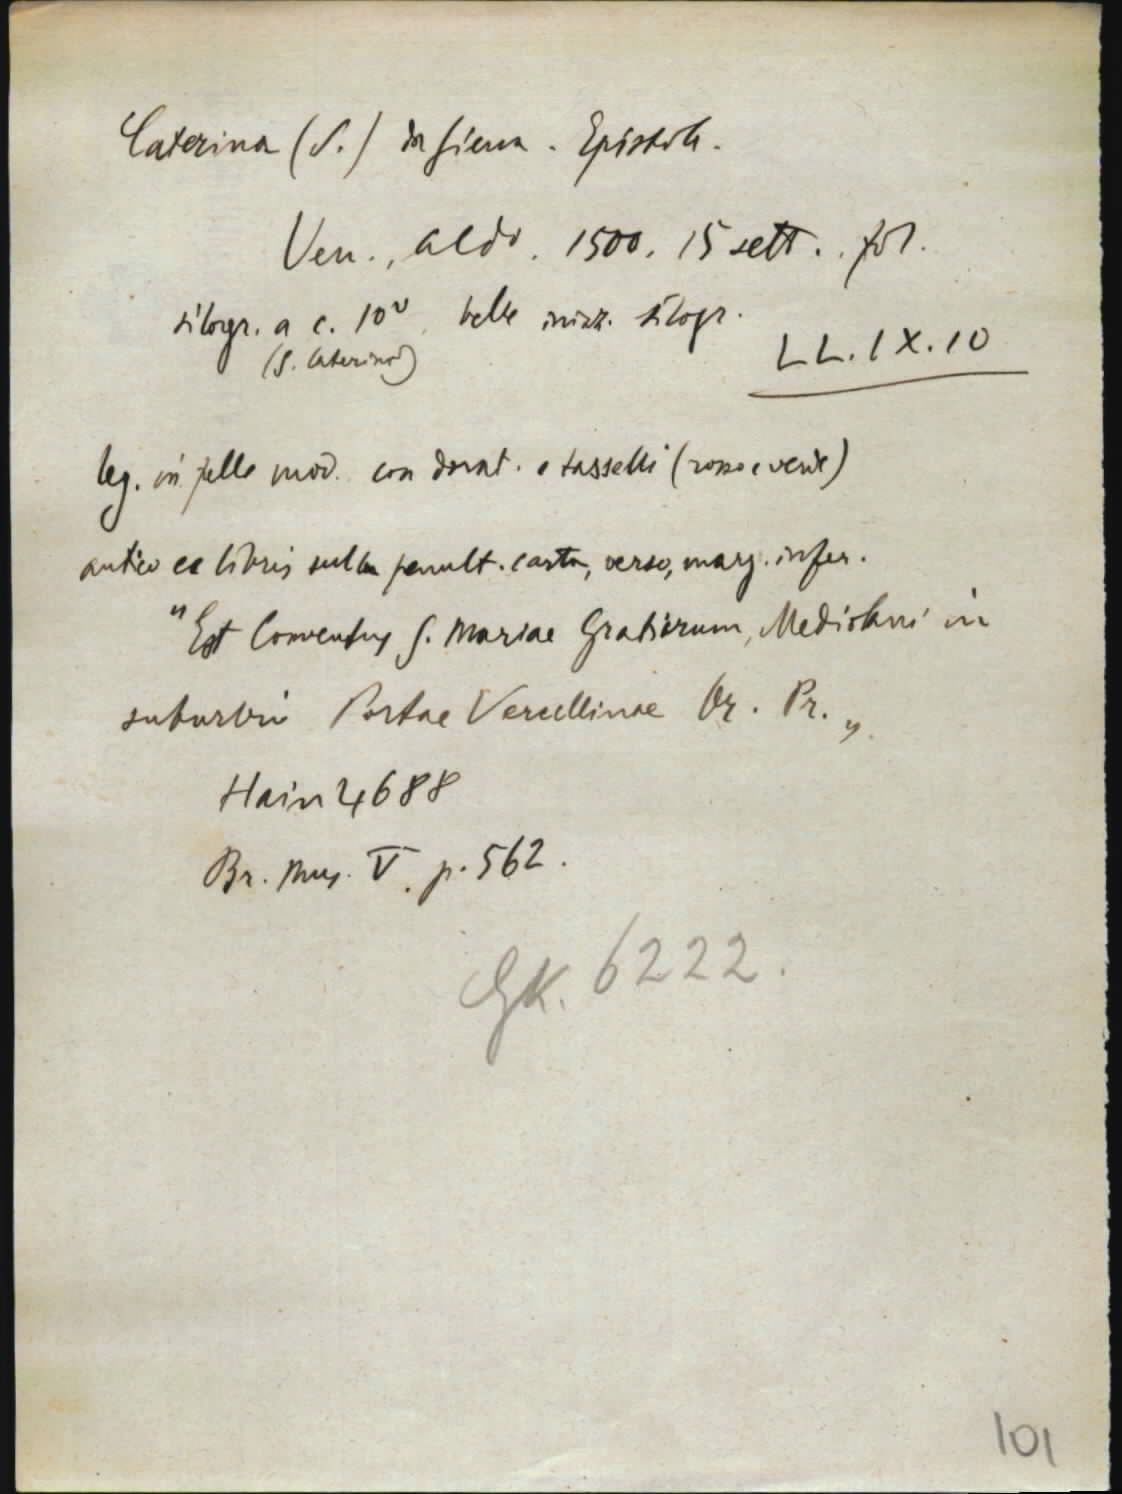 Caterina (S.) da Siena. Epistole.
Ven., Aldo. 1500. 15 sett.. fol.
silogr. a c. 10v belle iniz. silogr.
(S. Caterina)
LL.IX.10
leg. in pelle mod. con dorat. e tasselli (rosso e verde)
antico ex libris sulla penult. carta, verso, marg. infer.
"Est Conventus S. Mariae Gratiarum, Mediolani in
suburbio Portae Vercellinae Or. Pr.„
Hain 4688
Br. Mus. V. p. 562.
GK. 6222.
101